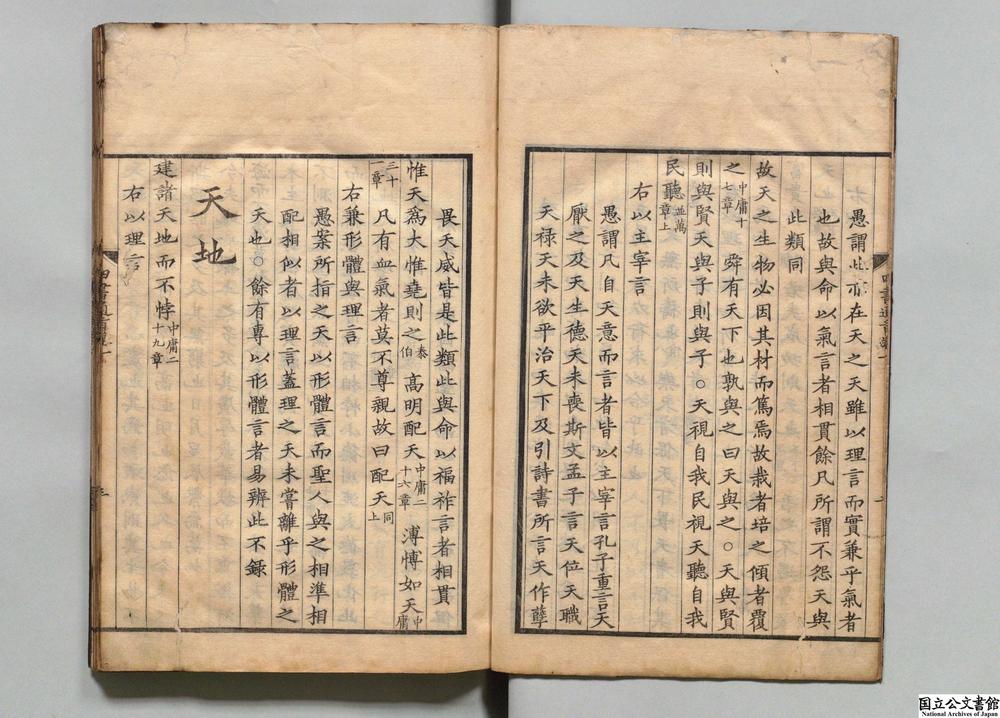 愚謂此亦在天之天雖以理言而實兼乎氣者
也故與命以氣言者相貫餘凡所謂不怨天與
此類同
故天之生物必因其材而篤焉故栽者培之傾者覆
之中庸十七章舜有天下也孰與之曰天與之○天與賢
則與賢天與子則與子○天視自我民視天聽自我
民聽並萬章上
右以主宰言
愚謂凡自天意而言者皆以主宰言孔子重言天
厭之及天生德天未喪斯文孟子言天位天職
天祿天未欲平治天下及引詩書所言天作孽
畏天威皆是此類此與命以福祚言者相貫
惟天為大惟堯則之泰伯高明配天中庸二十六章溥愽如天中庸
三十一章凡有血氣者莫不尊親故曰配天同上
右兼形體與理言
愚案所指之天以形體言而聖人與之相準相
配相似者以理言蓋理之天未嘗離乎形體之
天也○餘有專以形體言者易辨此不錄
天地
建諸天地而不悖中庸二十九章
右以理言
国立公文書館
National Archives of Japan